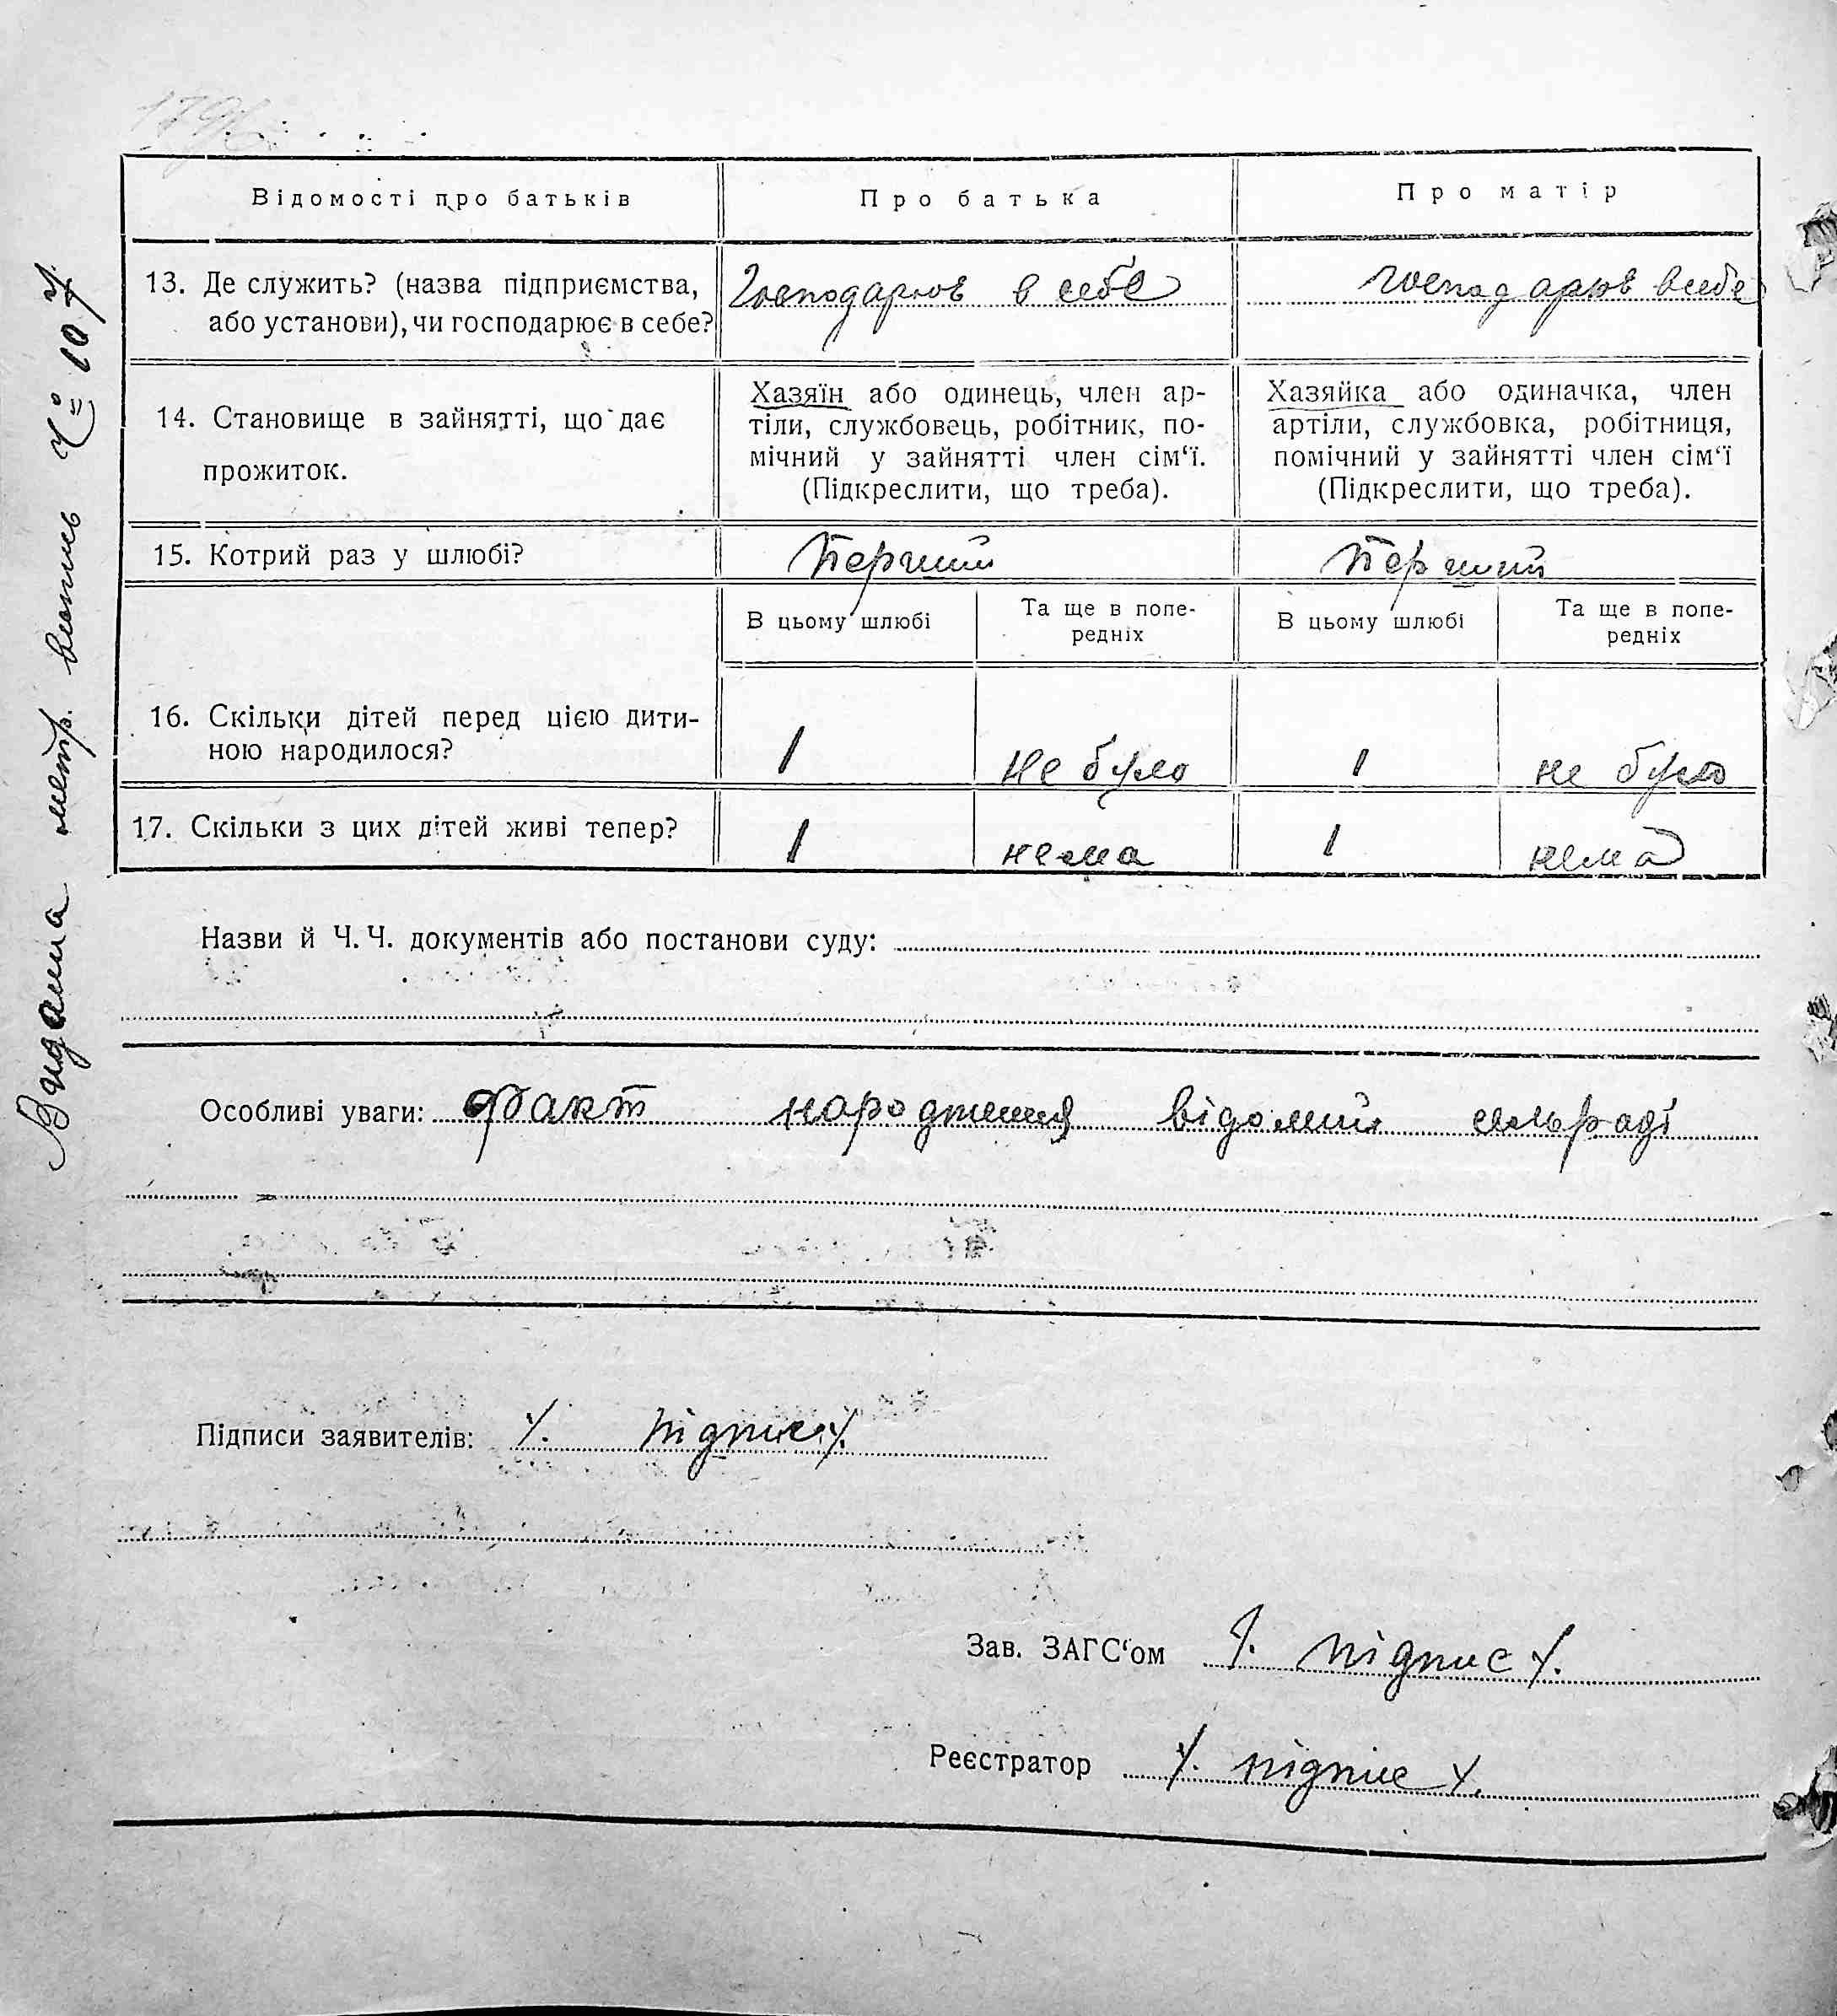 Відомості про батьків Про батька Про матір
13. Де служить? (назва підприємства, або установи), чи господарює в себе? Господарює в себе господарює в себе
14. Становище в зайнятті, що дає прожиток.
Хазяїн або одинець, член ар-
тіли, службовець, робітник, по-
мічний у зайнятті член сім‘ї.
(Підкреслити, що треба).
Хазяйка або одиначка, член
артіли, службовка, робітниця,
помічний у зайнятті член сім‘ї
(Підкреслити, що треба).
15. Котрий раз у шлюбі? Перший Перший
В цьому шлюбі Та ще в попе-редніх В цьому шлюбі Та ще в попе-редніх
16. Скільки дітей перед цією дити-
ною народилося? 1 не було 1 не було
17. Скільки з цих дітей живі тепер? 1 нема 1 нема
Назви й Ч.Ч. документів або постанови суду:
Особливі уваги: Факт народження відомий сельраді
Підписи заявителів: /. підпис /.
Зав. ЗАГС‘ом /. підпис /.
Реєстратор /. підпис /.
Видана метр. випись № 107